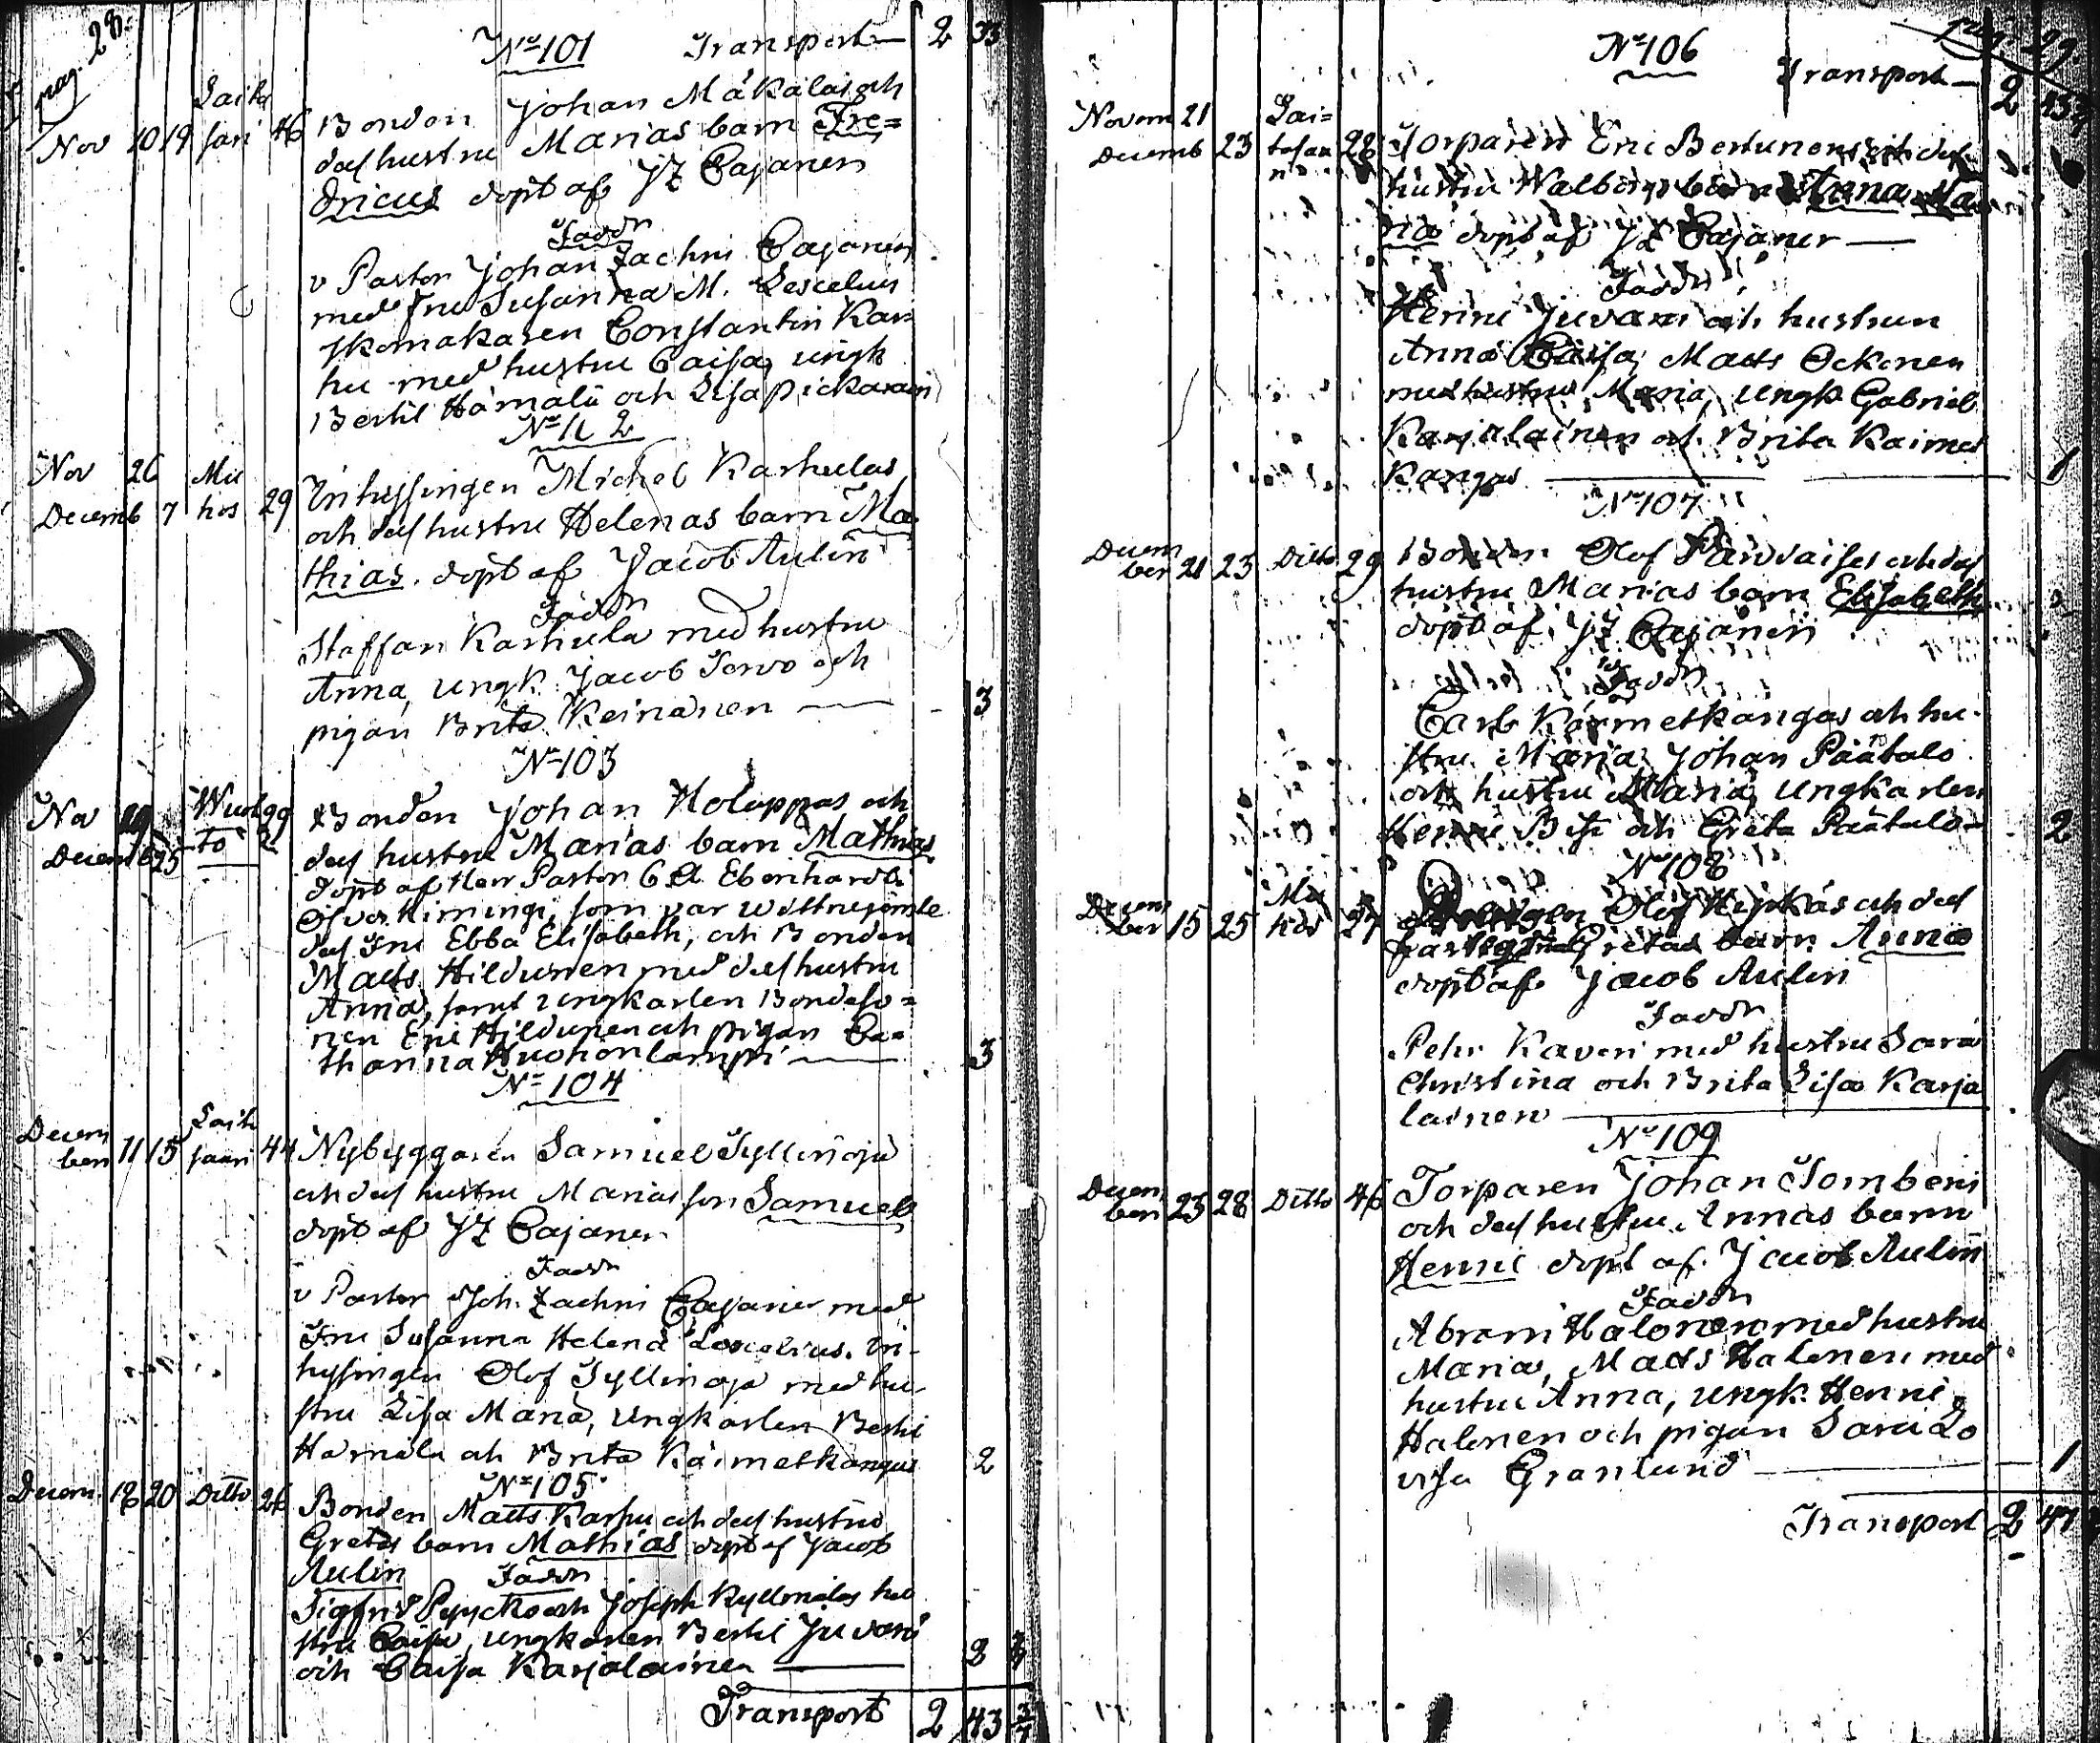 pag. 28.
No 101 Transport— 2 33
Nov 10 19 Saita
jari 46 Bonden Johan Mäkäläs och
des hustru Marias barn Fre=
dricus döpt af JZ Cajanen
Faddr
v Pastor Johan Zachri Cajanen
med Fru Susanna M. Lescelius
skomakaren Constantin Kar
hu med hustru Caisa, ungk
Bertil Hämälä och Lisa Pickarain
No 102
Nov 26 Mie
Decemb 7 hos 29 Inhysingen Michel Karhulas
och des hustru Helenas barn Ma
thias. döpt af Jacob Aulin
Faddr
Staffan Karhula med hustru
Anna, Ungk. Jacob Servo och
pigan Brita Keinänen — 3
No 103
Nov 29 Wuok
Decemb 25 to Bonden Johan Holappas och
des hustru Marias barn Mathias
döpt af Herr Pastor C A Eberhardt i
Öfver Kimingi, som var Wittne jemte
des Fru Ebba Elisabeth, och Bonden
Matts Hildunen med des hustru
Anna, samt Ungkarlen Bondeso=
nen Eric Hildunen och pigan Ca=
tharina Huohonlampi — 3
No 104
Decem
ber 11 15 Saita
jaari 44 Nybyggaren Samuel Syllinoja
och des hustru Marias son Samuel
döpt af JZ Cajanen
Faddr
v Pastor Joh. Zachri Cajanen med
Fru Susanna Helena Lescelius. In-
hysingen Olof Syllinoja med hu-
stru Lisa Maria, Ungkarlen Bertil
Hämälä och Brita Käimetkangas 2
No 105
Decem. 18 20 Ditto 26 Bonden Matts Karhu och des hustru
Gretas barn Mathias döpt af Jacob
Aulin Faddr
Sigfrid Pyyckö och Joseph Kyllönälas hu
stru Caisa, ungkarlen Bertil Juvani
och Caisa Karjalainen — 2
Transport 2 43
pag. 29.
No 106
Transport— 2 43
Novem 21
Decemb 23 Sai=
tasaa
28 Torparen Eric Bertunens och des
hustru Walborgs barn Anna Ma
ria döpt af JZ Cajaner —
Faddr
Henric Juvani och hustrun
Anna Caisa, Matts Ockonen
med hustru Maria, Ungk Gabriel
Karjalainen och Brita Kaimet
kangas — 1
No 107
Decem
ber 21 23 Ditto 29 Bonden Olof Parvaises och des
hustru Marias barn Elisabeth
döpt af JZ Cajanen
Faddr
Carl Käimetkangas och hu-
stru Maria, Johan Päätalo
och hustru Maria, Ungkarlen
Henric och Greta Päätalo— 2
No 108
Decem
ber 15 25 Mie
hos 27 Olof och des
Gretas barn Anna
döpt af Jacob Aulin
Faddr
Pehr Kaveri med hustru Sara
Christina och Brita Lisa Karja
lainen —
No 109
Decem
ber 23 28 Ditto 46 Torparen Johan Tomberi
och des hustru Annas barn
Henric döpt af Jacob Aulin
Faddr
Abram Halonen med hustru
Maria, Matts Halonen med
hustru Anna, Ungk. Henric
Halonen och pigan Sara Lo
visa Granlund — 1
Transport 2 47